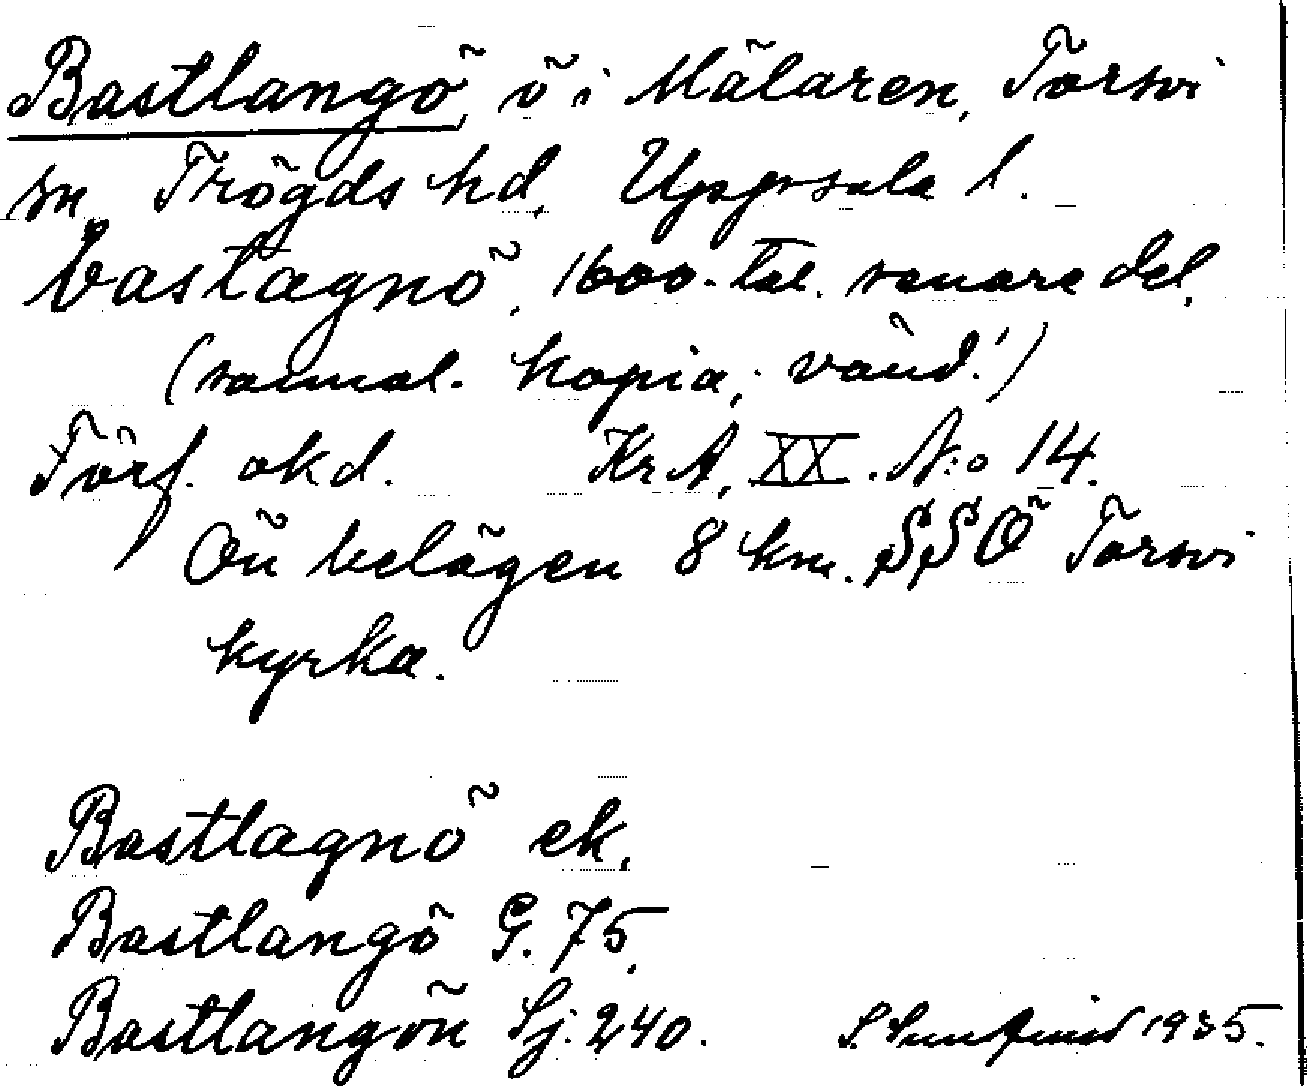 Bastlangö, ö i Mälaren, Torsvi
sn, Trögds hd, Uppsala l.
bastagnö, 1600-tal. senare del,
(samml. kopia; vänd!)
Förf. okd. KrA, XX. N:o 14.
Ön belägen 8 km. SSÖ Torsvi
kyrka.
Bastlagnö ek.
Bastlangö G. 75.
Bastlangön Sj. 240. 1935.